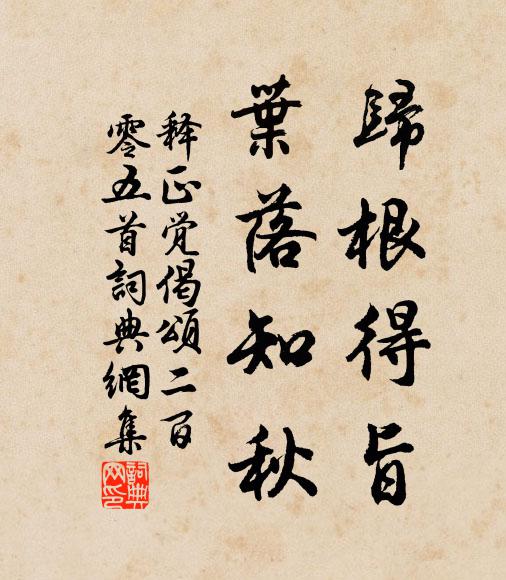 歸根得旨
葉落知秋
釋正覺偈頌二百
零五首詞典網集
詞典網印